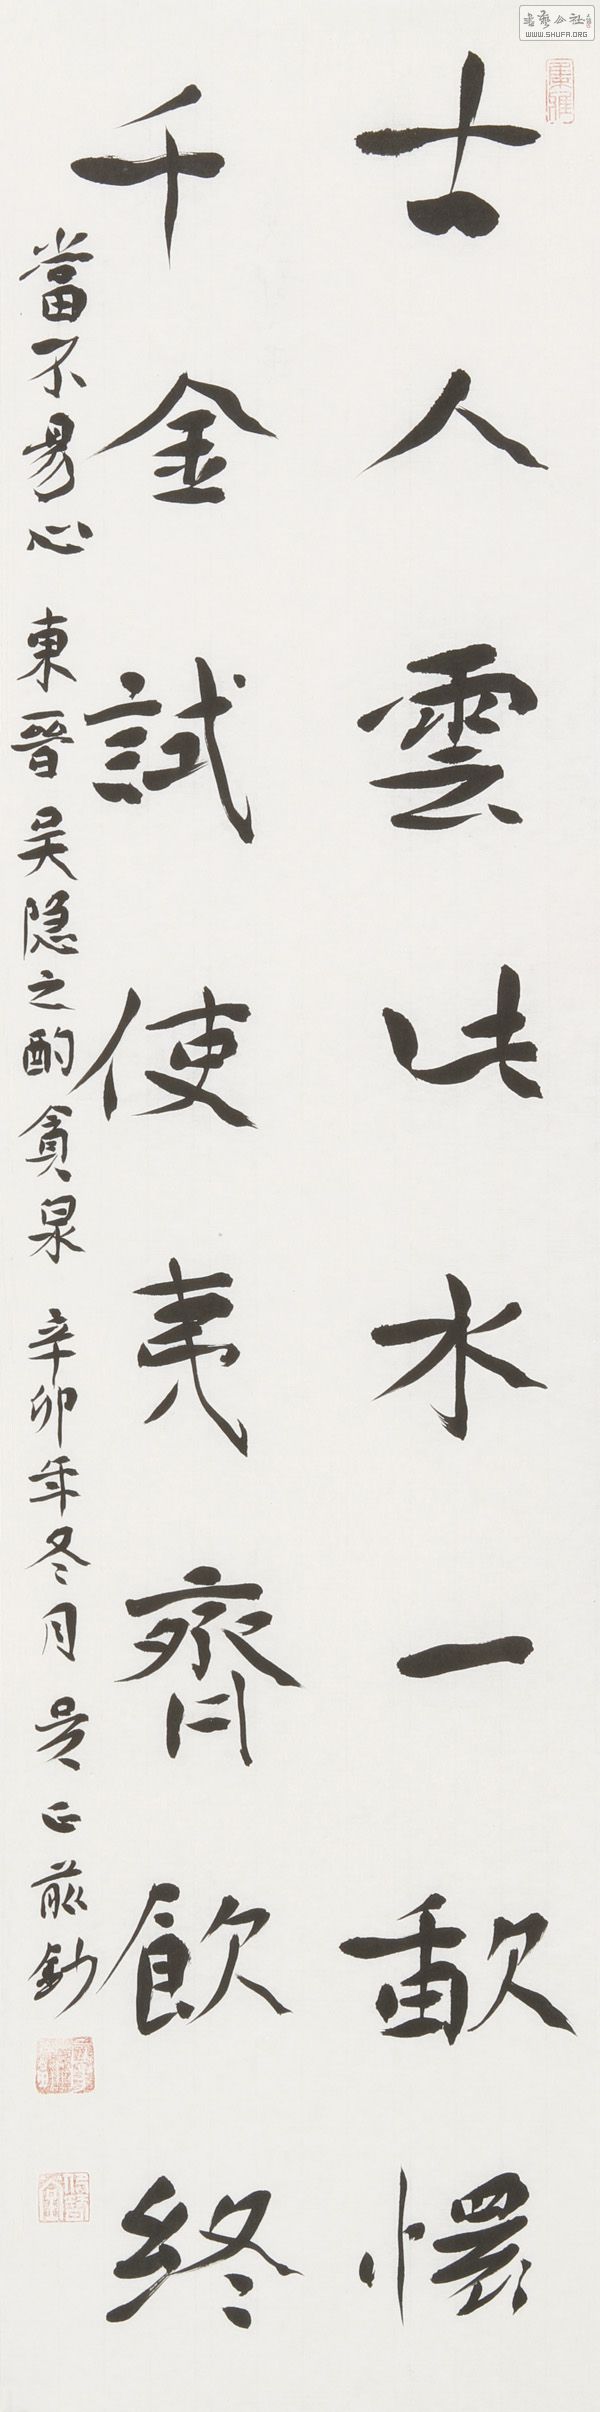 古人雲此水一歃懷
千金試使夷齊飲終
當不易心 東晉吴隐之酌貪泉 辛卯年冬月 吴正
書藝公社
WWW.SHUFA.ORG